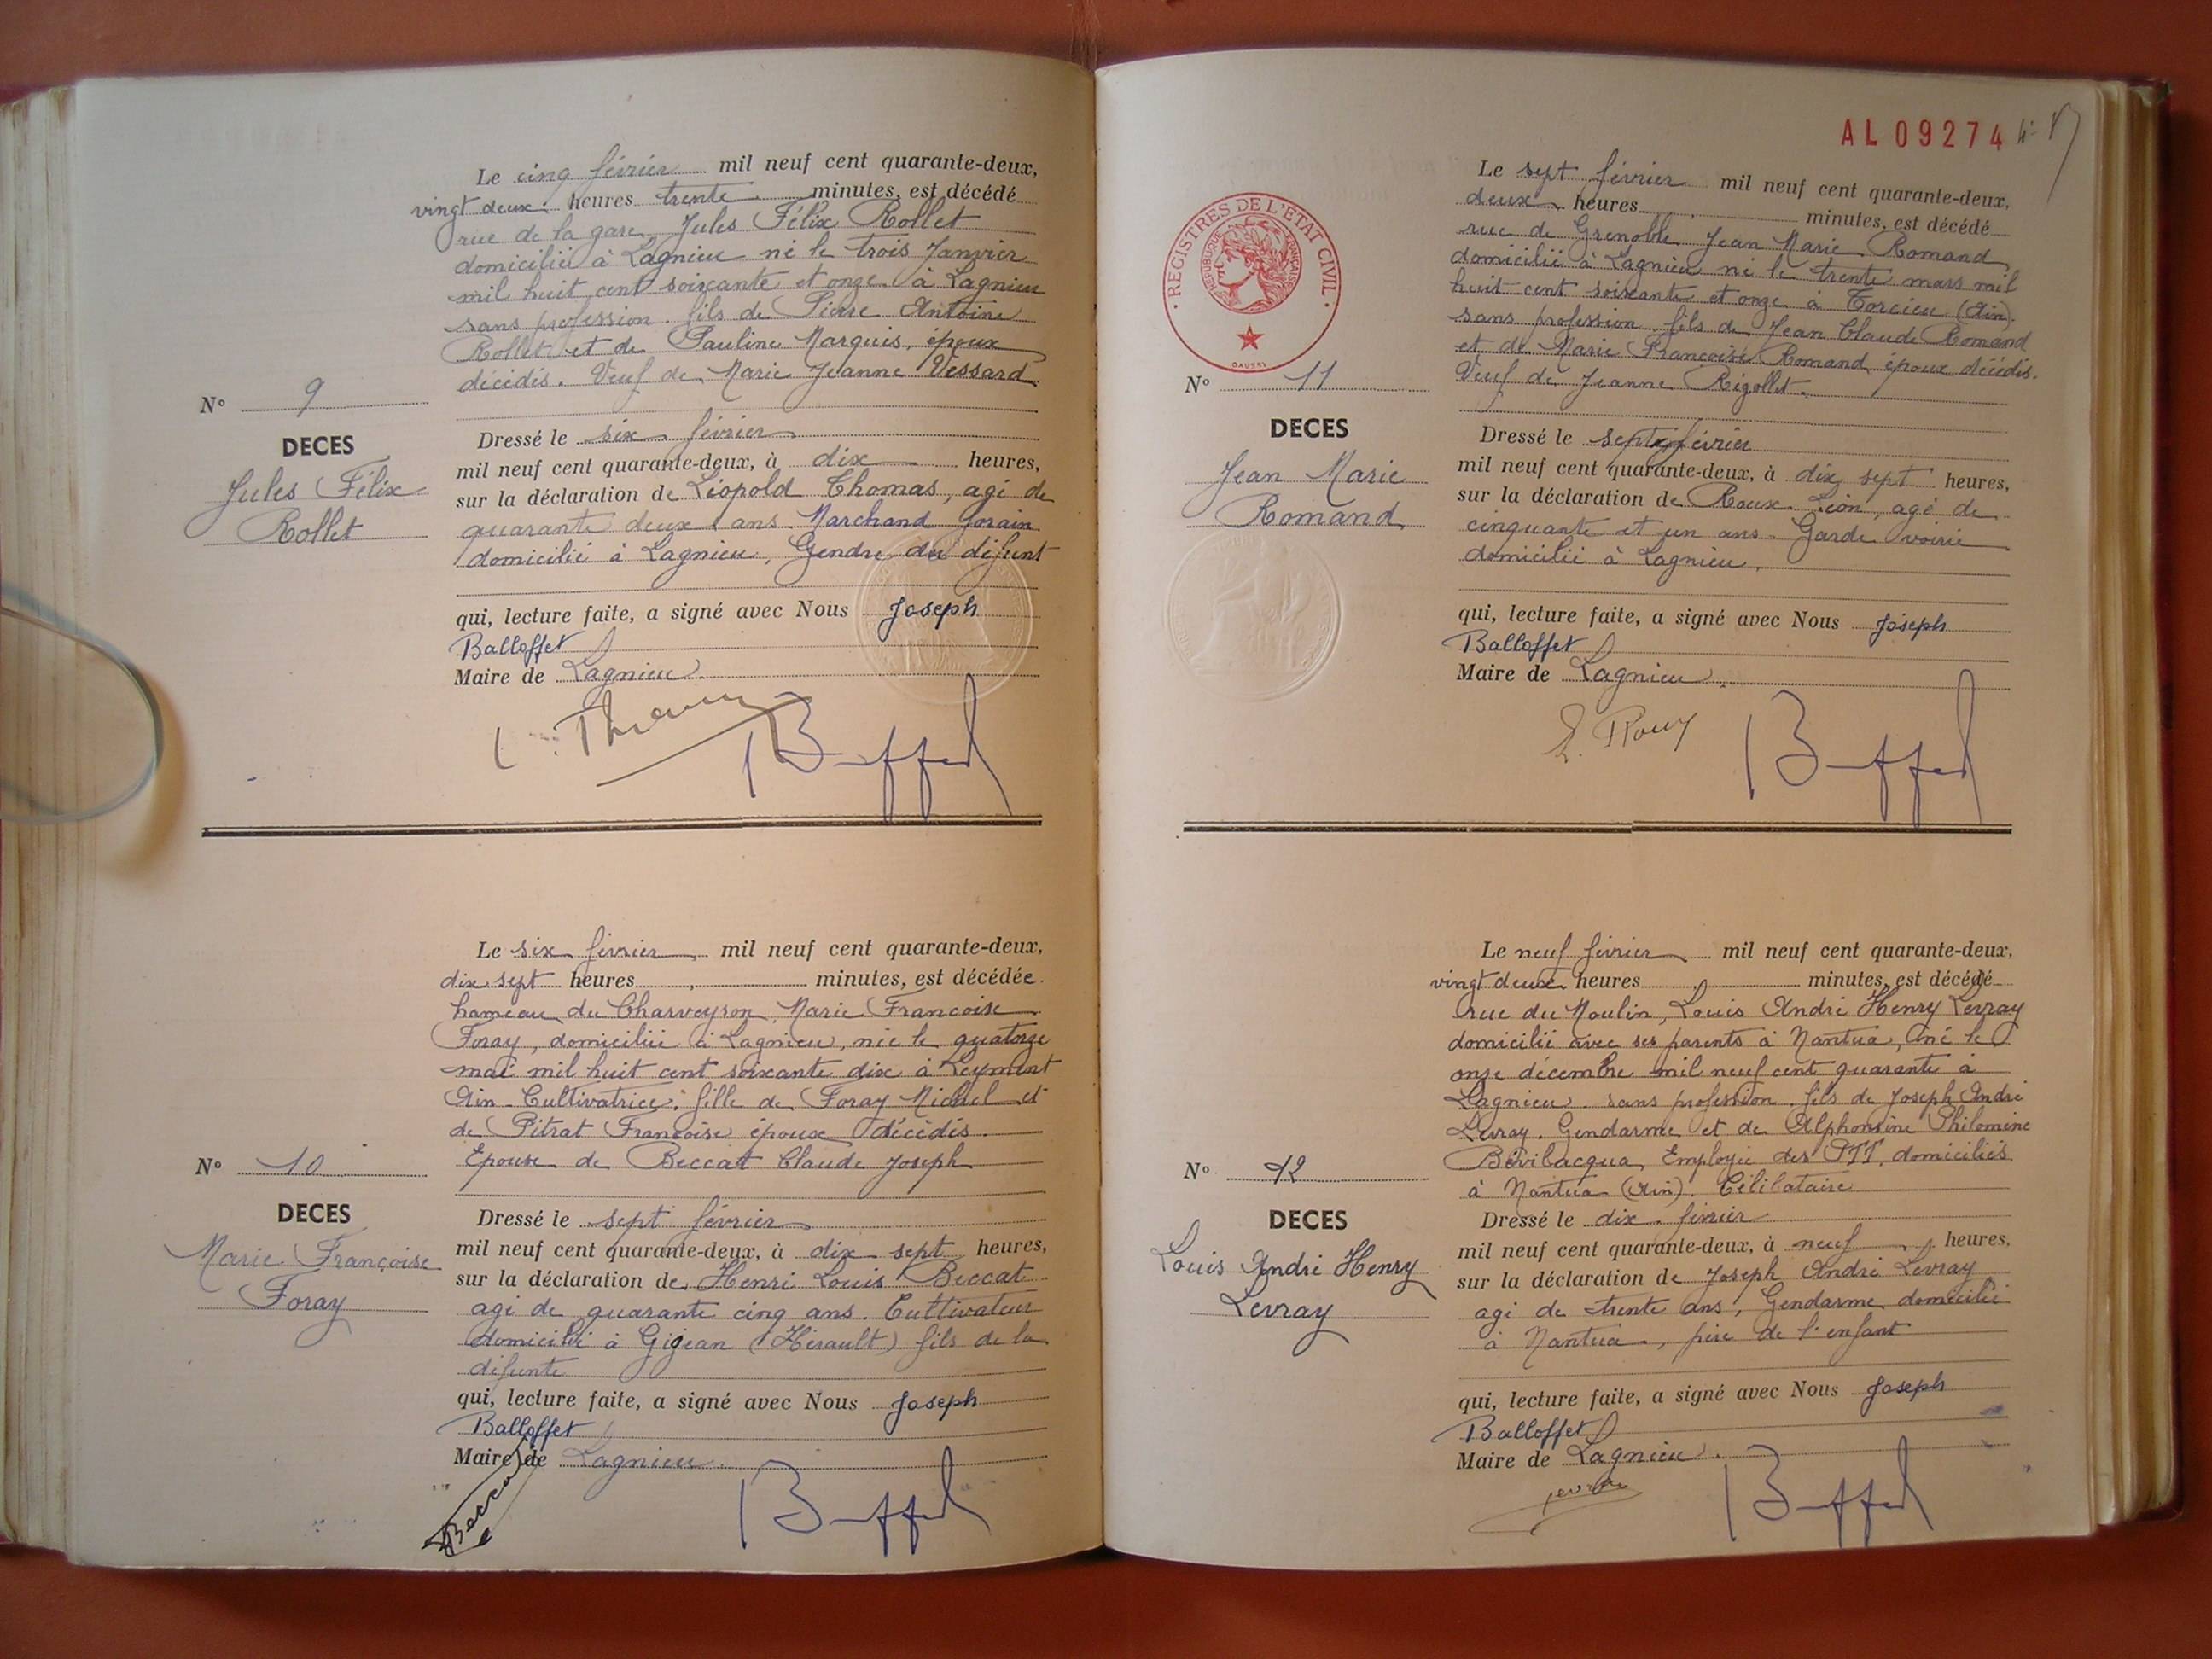 Le cinq février mil neuf cent quarante-deux,
vingt deux heures trente minutes, est décédé
rue de la gare, Jules Félix Rollet
domicilié à Lagnieu né le trois Janvier
mil huit cent soixante et onze à Lagnieu
sans profession. fils de Pierre Antoine
Rollet et de Pauline Marquis, époux
décédés. Veuf de Marie Jeanne Vessard.
N° 9
DECES
Jules Félix
Rollet
Dressé le six février
mil neuf cent quarante-deux, à dix heures,
sur la déclaration de Léopold Thomas, agé de
quarante deux ans. Marchand forain
domicilié à Lagnieu, Gendre du défunt
qui, lecture faite, a signé avec Nous Joseph
Balloffet
Maire de Lagnieu.
Le six février mil neuf cent quarante-deux,
dix sept heures minutes, est décédée
hameau du Charveyron Marie Françoise
Foray, domiciliée à Lagnieu, née le quatorze
mai mil huit cent soixante dix à Leyment
Ain. Cultivatrice, fille de Foray Michel et
de Pitrat Françoise époux décédés.
Epouse de Beccat Claude Joseph
N° 10
DECES
Marie Françoise
Foray
Dressé le sept février
mil neuf cent quarante-deux, à dix sept heures,
sur la déclaration de Henri Louis Beccat
agé de quarante cinq ans. Cultivateur
domicilié à Gigean (Hérault) fils de la
défunte
qui, lecture faite, a signé avec Nous Joseph
Balloffet
Maire de Lagnieu.
Beccat
AL 09274
REGISTRES DE L'ETAT CIVIL
REPUBLIQUE FRANÇAISE
Le sept février mil neuf cent quarante-deux,
deux heures minutes, est décédé
rue de Grenoble Jean Marie Romand
domicilié à Lagnieu né le trente mars mil
huit cent soixante et onze à Torcieu (Ain).
sans profession fils de Jean Claude Romand
et de Marie Françoise Romand époux décédés.
Veuf de Jeanne Rigollet.
N° 11
DECES
Jean Marie
Romand
Dressé le sept février
mil neuf cent quarante-deux, à dix sept heures,
sur la déclaration de Roux Léon, agé de
cinquante et un ans. Garde voirie
domicilié à Lagnieu,
qui, lecture faite, a signé avec Nous Joseph
Balloffet
Maire de Lagnieu.
Roux
Le neuf février mil neuf cent quarante-deux,
vingt deux heures minutes, est décédé
rue du Moulin, Louis André Henry Levray
domicilié avec ses parents à Nantua, né le
onze décembre mil neuf cent quarante à
Lagnieu. sans profession. fils de Joseph André
Levray. Gendarme et de Alphonsine Philomine
Bévilacqua, Employée des PTT, domiciliés
à Nantua (Ain). Célibataire
N° 12
DECES
Louis André Henry
Levray
Dressé le dix février
mil neuf cent quarante-deux, à neuf heures,
sur la déclaration de Joseph André Levray
agé de trente ans, Gendarme domicilié
à Nantua, père de l'enfant
qui, lecture faite, a signé avec Nous Joseph
Balloffet
Maire de Lagnieu.
Levray